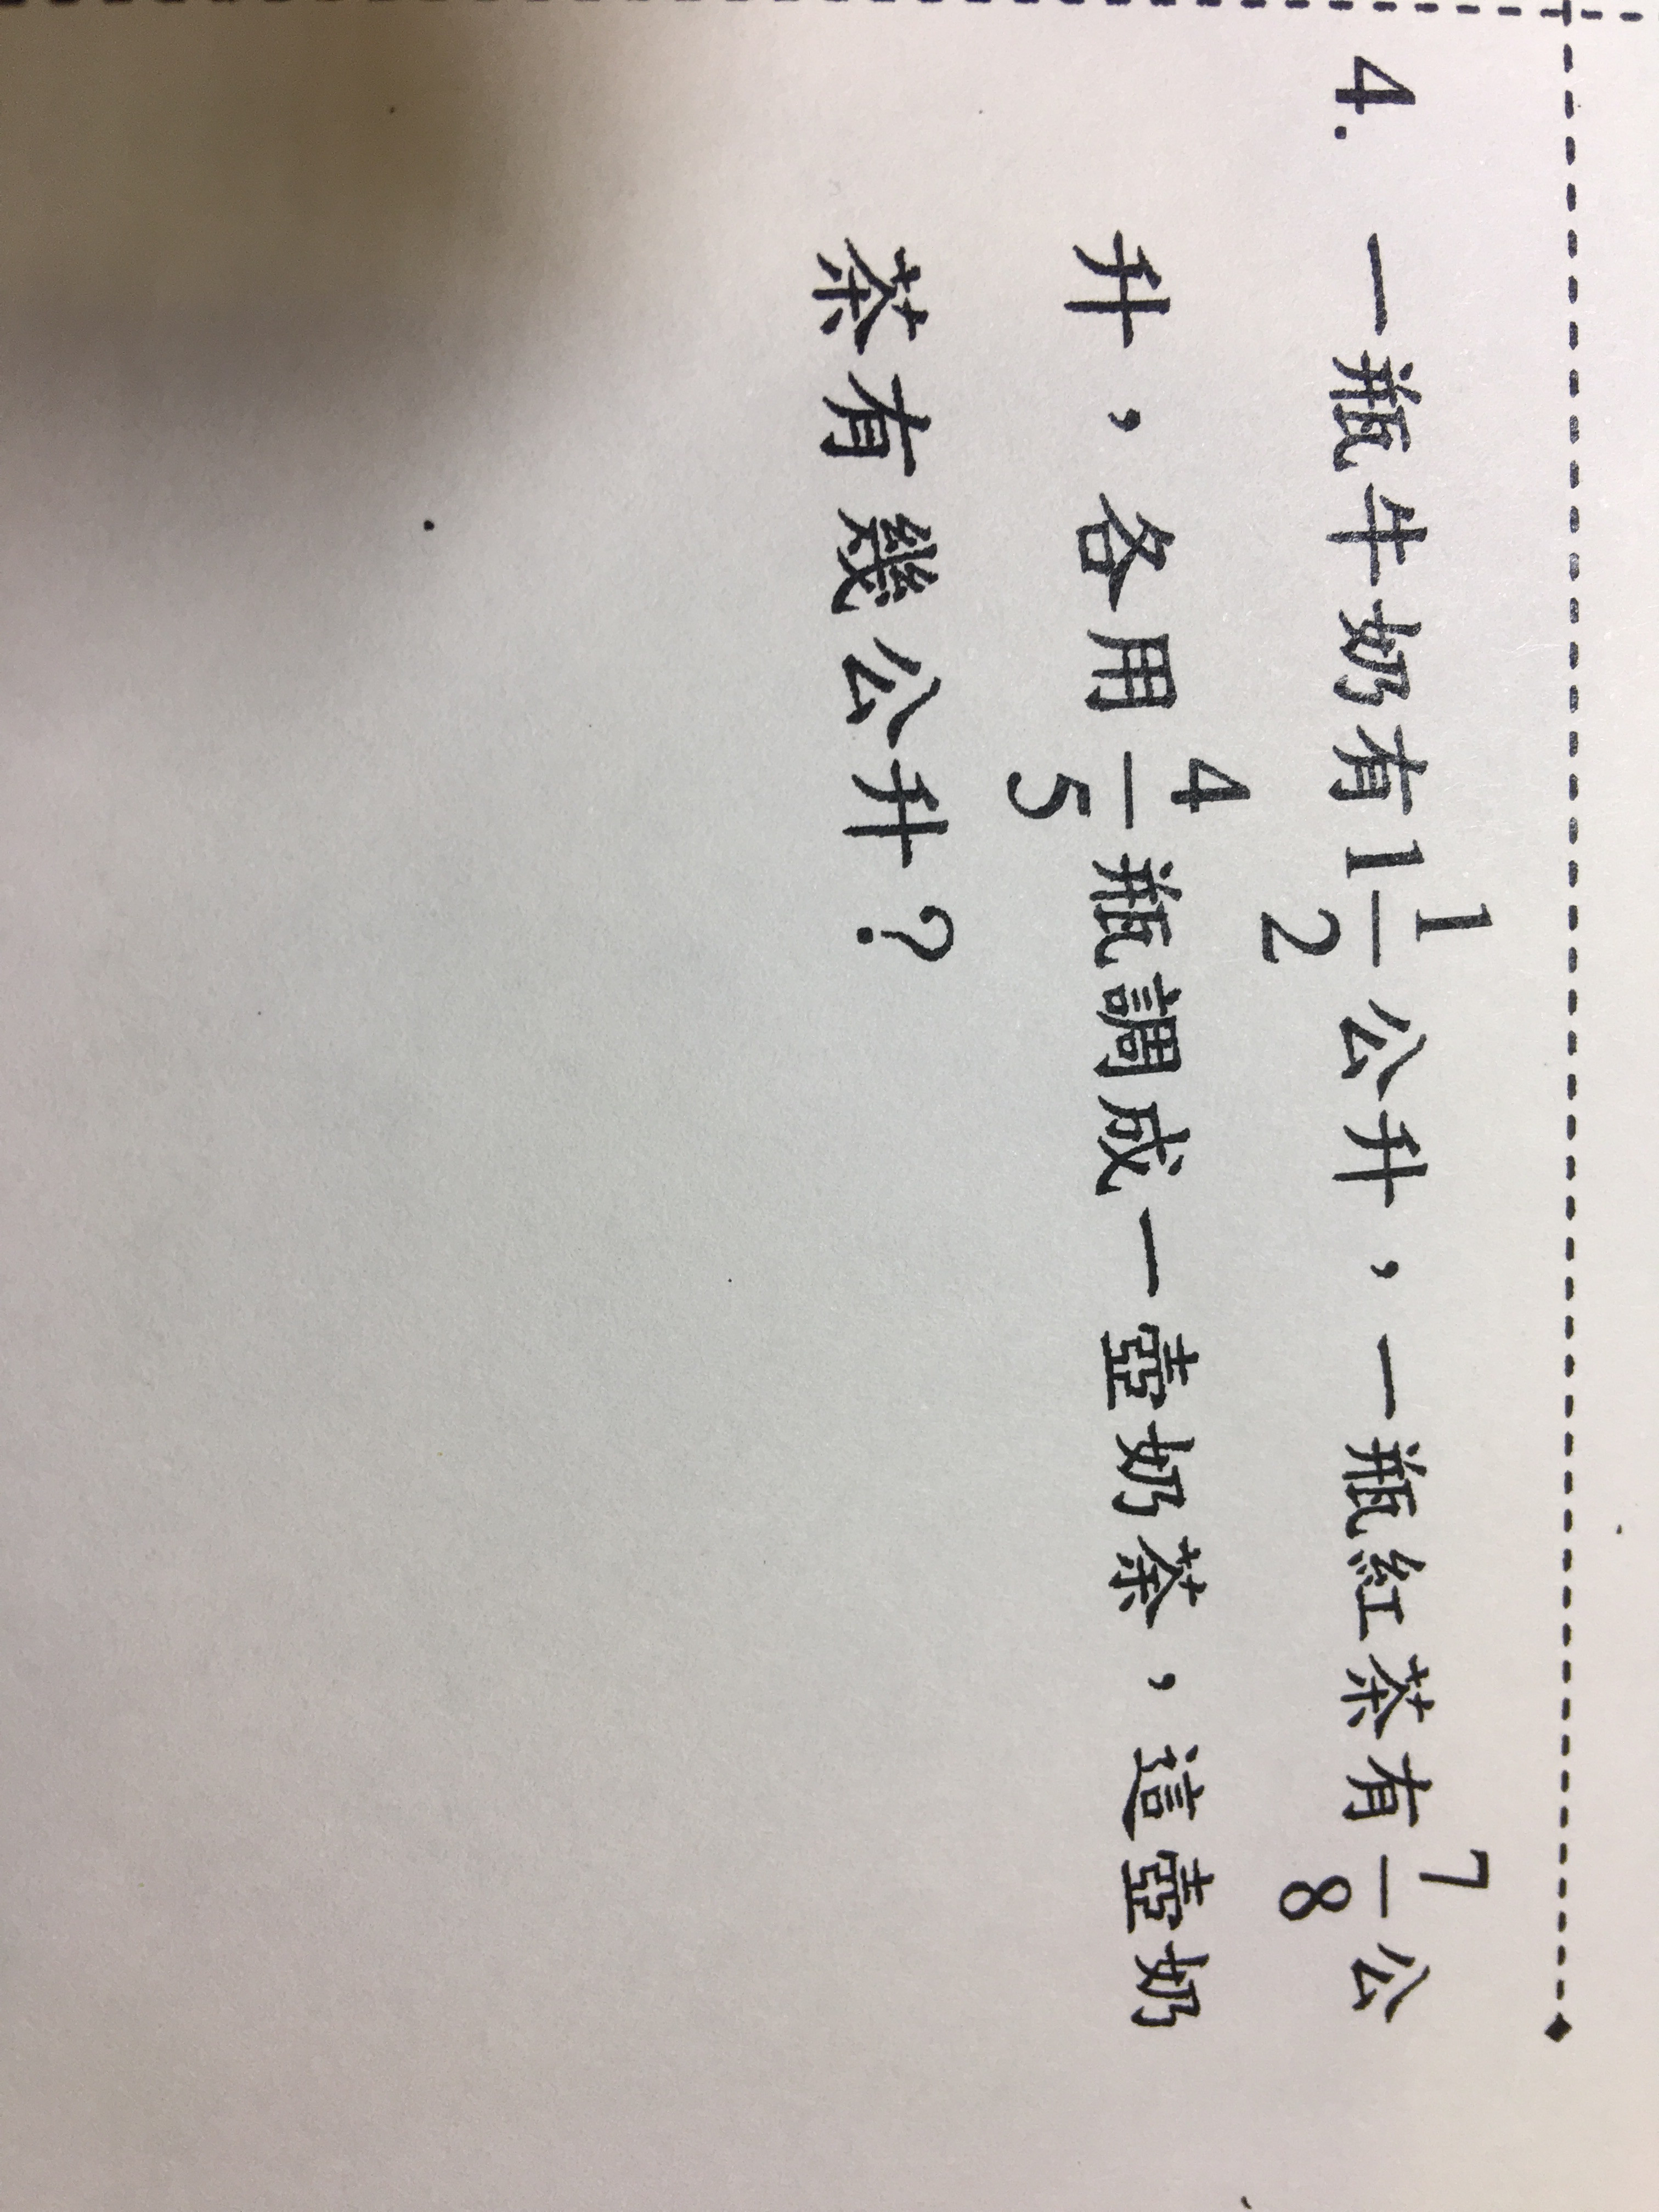 4. 一瓶牛奶有1 1/2 公升，一瓶紅茶有 7/8 公
升，各用 4/5 瓶調成一壺奶茶，這壺奶
茶有幾公升？